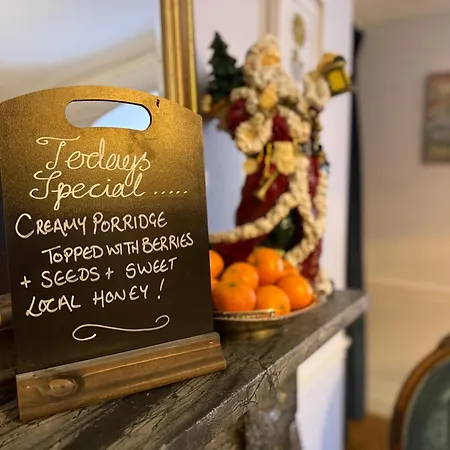 Todays
Special.....
CREAMY PORRIDGE
TOPPED WITH BERRIES
+ SEEDS + SWEET
LOCAL HONEY!